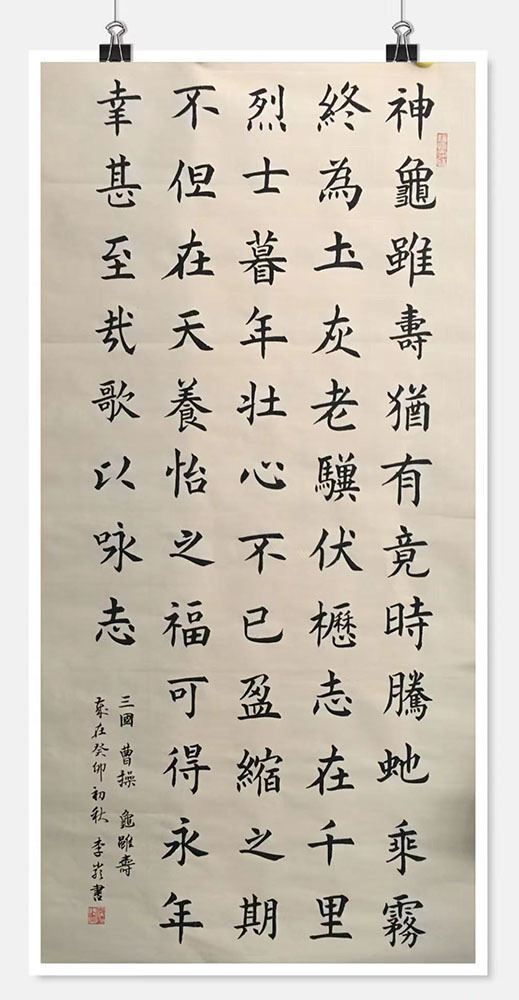 神龜雖壽猶有竟時騰虵乘霧
終為土灰老驥伏櫪志在千里
烈士暮年壯心不已盈縮之期
不但在天養怡之福可得永年
幸甚至哉歌以咏志
三國 曹操 龜雖壽
歲在癸卯初秋 李書